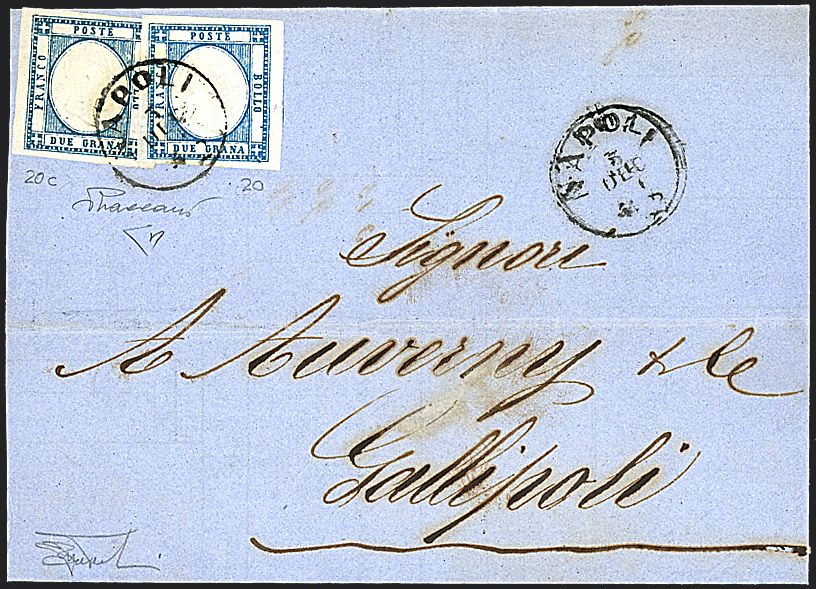 POSTE
FRANCO
DUE GRANA
POSTE
FRA
BOLLO
DUE GRANA
NAPOLI
20c
20
NAPOLI
3
DIC
Signori
A Auverny & Co
Gallipoli